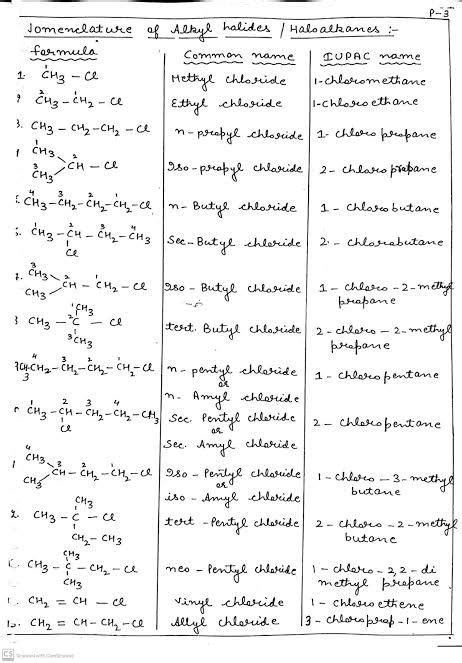 P-3
Nomenclature of Alkyl halides / Haloalkanes :-
formula Common name IUPAC name
1. CH3 - Cl Methyl chloride 1-chloromethane
CH3 - CH2 - Cl Ethyl chloride 1-chloroethane
3. CH3 - CH2 - CH2 - Cl n-propyl chloride 1-chloropropane
CH3 CH3 > CH - Cl Iso-propyl chloride 2-chloropropane
CH3 - CH2 - CH2 - CH2 - Cl n-Butyl chloride 1-chlorobutane
CH3 - CH - CH2 - CH3 Sec-Butyl chloride 2-chlorobutane
Cl
CH3 CH3 > CH - CH2 - Cl Iso-Butyl chloride 1-chloro-2-methyl
propane
CH3
CH3 - C - Cl tert. Butyl chloride 2-chloro-2-methyl
CH3 propane
CH3 - CH2 - CH2 - CH2 - CH2 - Cl n-pentyl chloride 1-chloropentane
or
n-Amyl chloride
CH3 - CH - CH2 - CH2 - CH3 Sec. Pentyl chloride 2-chloropentane
Cl or
Sec. Amyl chloride
CH3 CH3 > CH - CH2 - CH2 - Cl Iso-Pentyl chloride 1-chloro-3-methyl
or butane
iso-Amyl chloride
CH3
CH3 - C - Cl tert-Pentyl chloride 2-chloro-2-methyl
CH2 - CH3 butane
CH3
CH3 - C - CH2 - Cl neo-Pentyl chloride 1-chloro-2,2-di
CH3 methyl propane
CH2 = CH - Cl Vinyl chloride 1-chloroethene
CH2 = CH - CH2 - Cl Allyl chloride 3-chloroprop-1-ene
CS Scanned with CamScanner